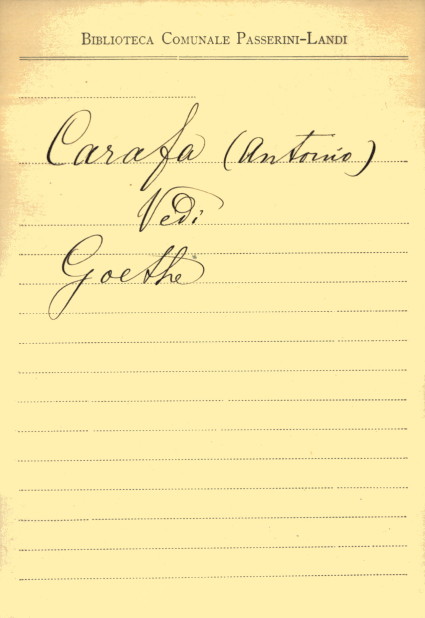 Biblioteca Comunale Passerini-Landi
Carafa (Antonio)
Vedi
Goethe